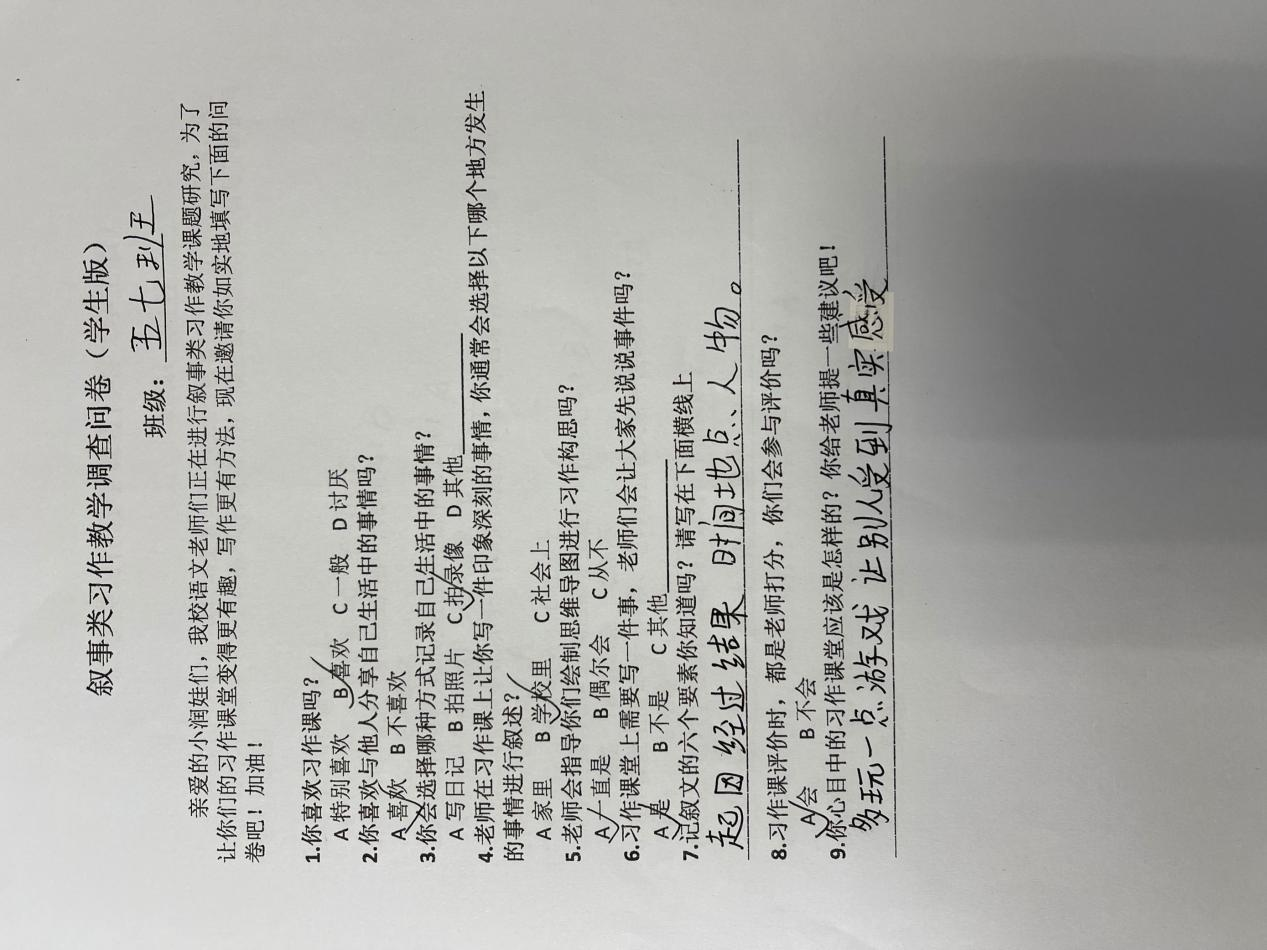 叙事类习作教学调查问卷（学生版）
班级：五七班
亲爱的小润娃们，我校语文老师们正在进行叙事类习作教学课题研究，为了
让你们的习作课堂变得更有趣，写作更有方法，现在邀请你如实地填写下面的问
卷吧！加油！
1.你喜欢习作课吗？
A 特别喜欢 B 喜欢 C 一般 D 讨厌
2.你喜欢与他人分享自己生活中的事情吗？
A 喜欢 B 不喜欢
3.你会选择哪种方式记录自己生活中的事情？
A 写日记 B 拍照片 C 拍录像 D 其他
4.老师在习作课上让你写一件印象深刻的事情，你通常会选择以下哪个地方发生
的事情进行叙述？
A 家里 B 学校里 C 社会上
5.老师会指导你们绘制思维导图进行习作构思吗？
A 一直是 B 偶尔会 C 从不
6.习作课堂上需要写一件事，老师们会让大家先说说事件吗？
A 是 B 不是 C 其他
7.记叙文的六个要素你知道吗？请写在下面横线上
起因 经过 结果 时间地点、人物。
8.习作课评价时，都是老师打分，你们会参与评价吗？
A 会 B 不会
9.你心目中的习作课堂应该是怎样的？你给老师提一些建议吧！
多玩一点游戏 让别人受到真实感受